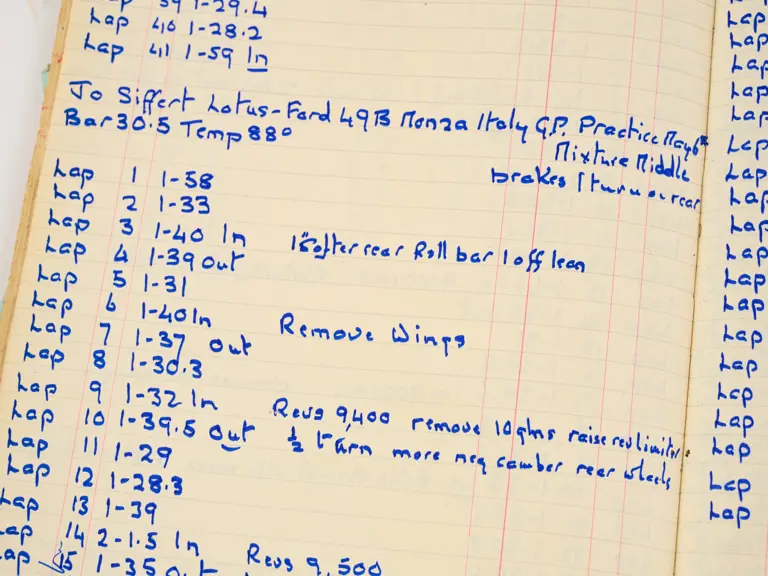 Lap 39 1-29.4
Lap 40 1-28.2
Lap 41 1-59 In
Jo Siffert Lotus-Ford 49B Monza Italy G.P. Practice
Bar 30.5 Temp 88°
Mixture Middle
brakes 1 turn on rear
Lap 1 1-58
Lap 2 1-33
Lap 3 1-40 In 1 softer rear Roll bar 1 off lean
Lap 4 1-39 out
Lap 5 1-31
Lap 6 1-40 In Remove Wings
Lap 7 1-37 out
Lap 8 1-30.3
Lap 9 1-32 In Revs 9,400 remove 10 gms raise rev limiter.
Lap 10 1-39.5 out ½ turn more neg camber rear wheels
Lap 11 1-29
Lap 12 1-28.3
Lap 13 1-39
Lap 14 2-1.5 In Revs 9,500
Lap 15 1-35 out
Lap
Lap
Lap
Lap
Lap
Lap
Lap
Lap
Lap
Lap
Lap
Lap
Lap
Lap
Lap
Lap
Lap
Lap
Lap